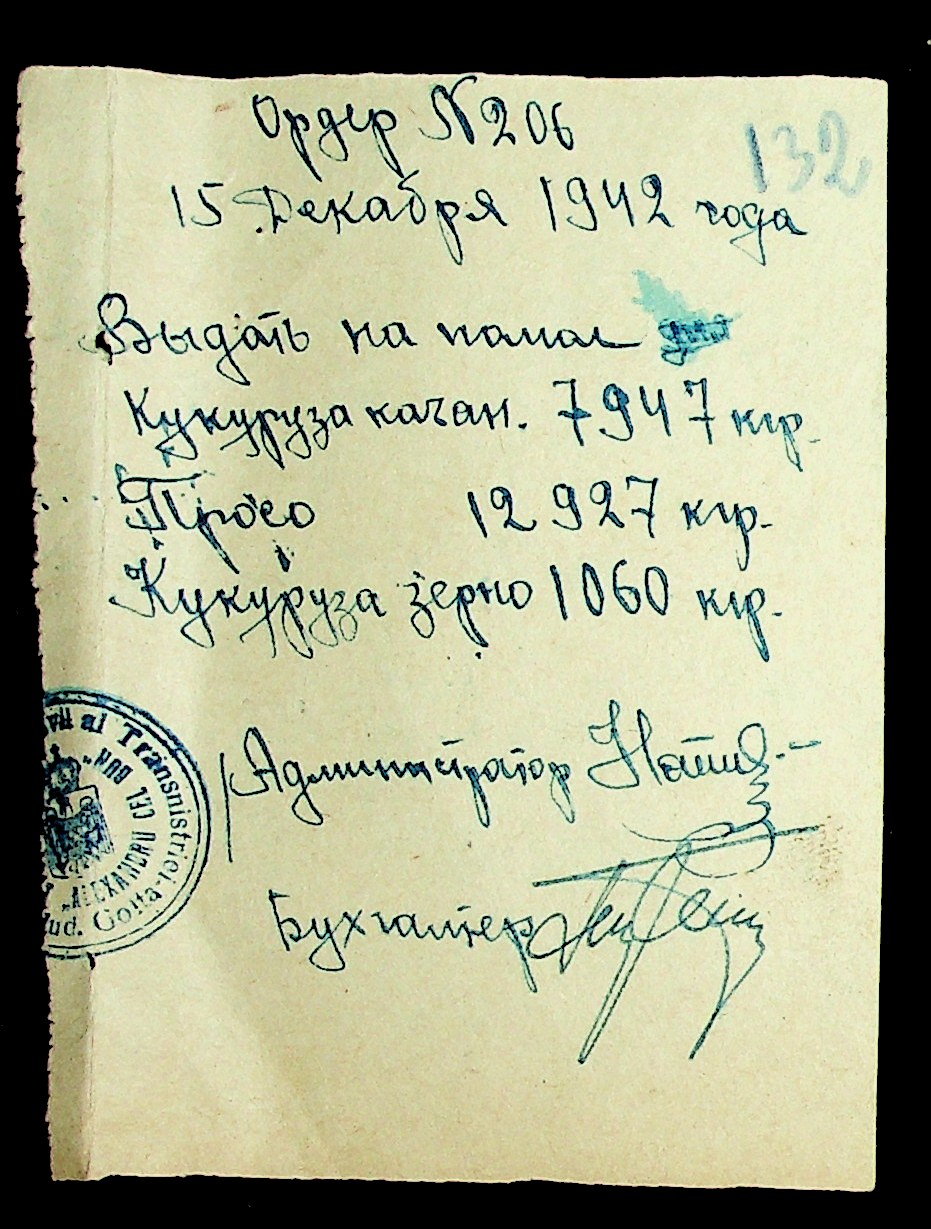 132
Ордер N 206
15 Декабря 1942 года
Выдать на памал
Кукуруза качан. 7947 кгр.
Просо 12 927 кгр.
Кукуруза зерно 1060 кгр.
Администратор
Бухгалтер
vil al Transnistriei
"ALEXANDRU CEL BUN"
Jud. Golta